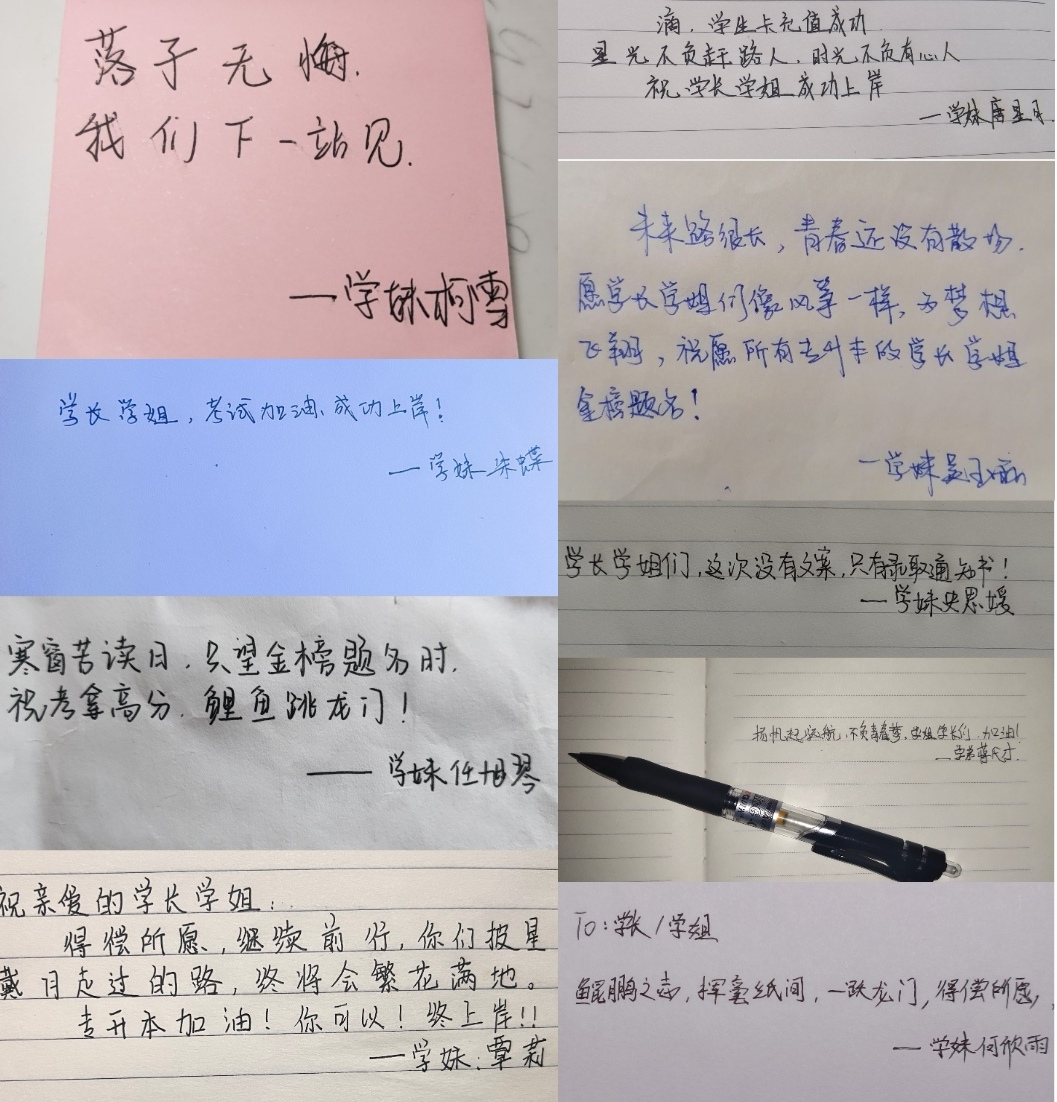 落子无悔.
我们下一站见.
—学妹柯雪
学长学姐，考试加油、成功上岸！
—学妹朱蝶
寒窗苦读日.只望金榜题名时.
祝考拿高分.鲤鱼跳龙门！
——学妹任旭琴
祝亲爱的学长学姐：
得偿所愿，继续前行，你们披星
戴月走过的路，终将会繁花满地。
专升本加油！你可以！终上岸!!
—学妹：覃莉
滴，学生卡充值成功
星光不负赶路人，时光不负有心人
祝学长学姐成功上岸
—学妹唐星月
未来路很长，青春还没有散场.
愿学长学姐们像风筝一样，为梦想
飞翔，祝愿所有专升本的学长学姐
金榜题名！
—学妹吴
学长学姐们，这次没有文案，只有录取通知书！
—学妹史思媛
扬帆起航，不负青春梦，学姐学长们，加油！
—学弟
To：学长/学姐
鲲鹏之志，挥毫纸间，一跃龙门，得偿所愿，
—学妹何欣雨